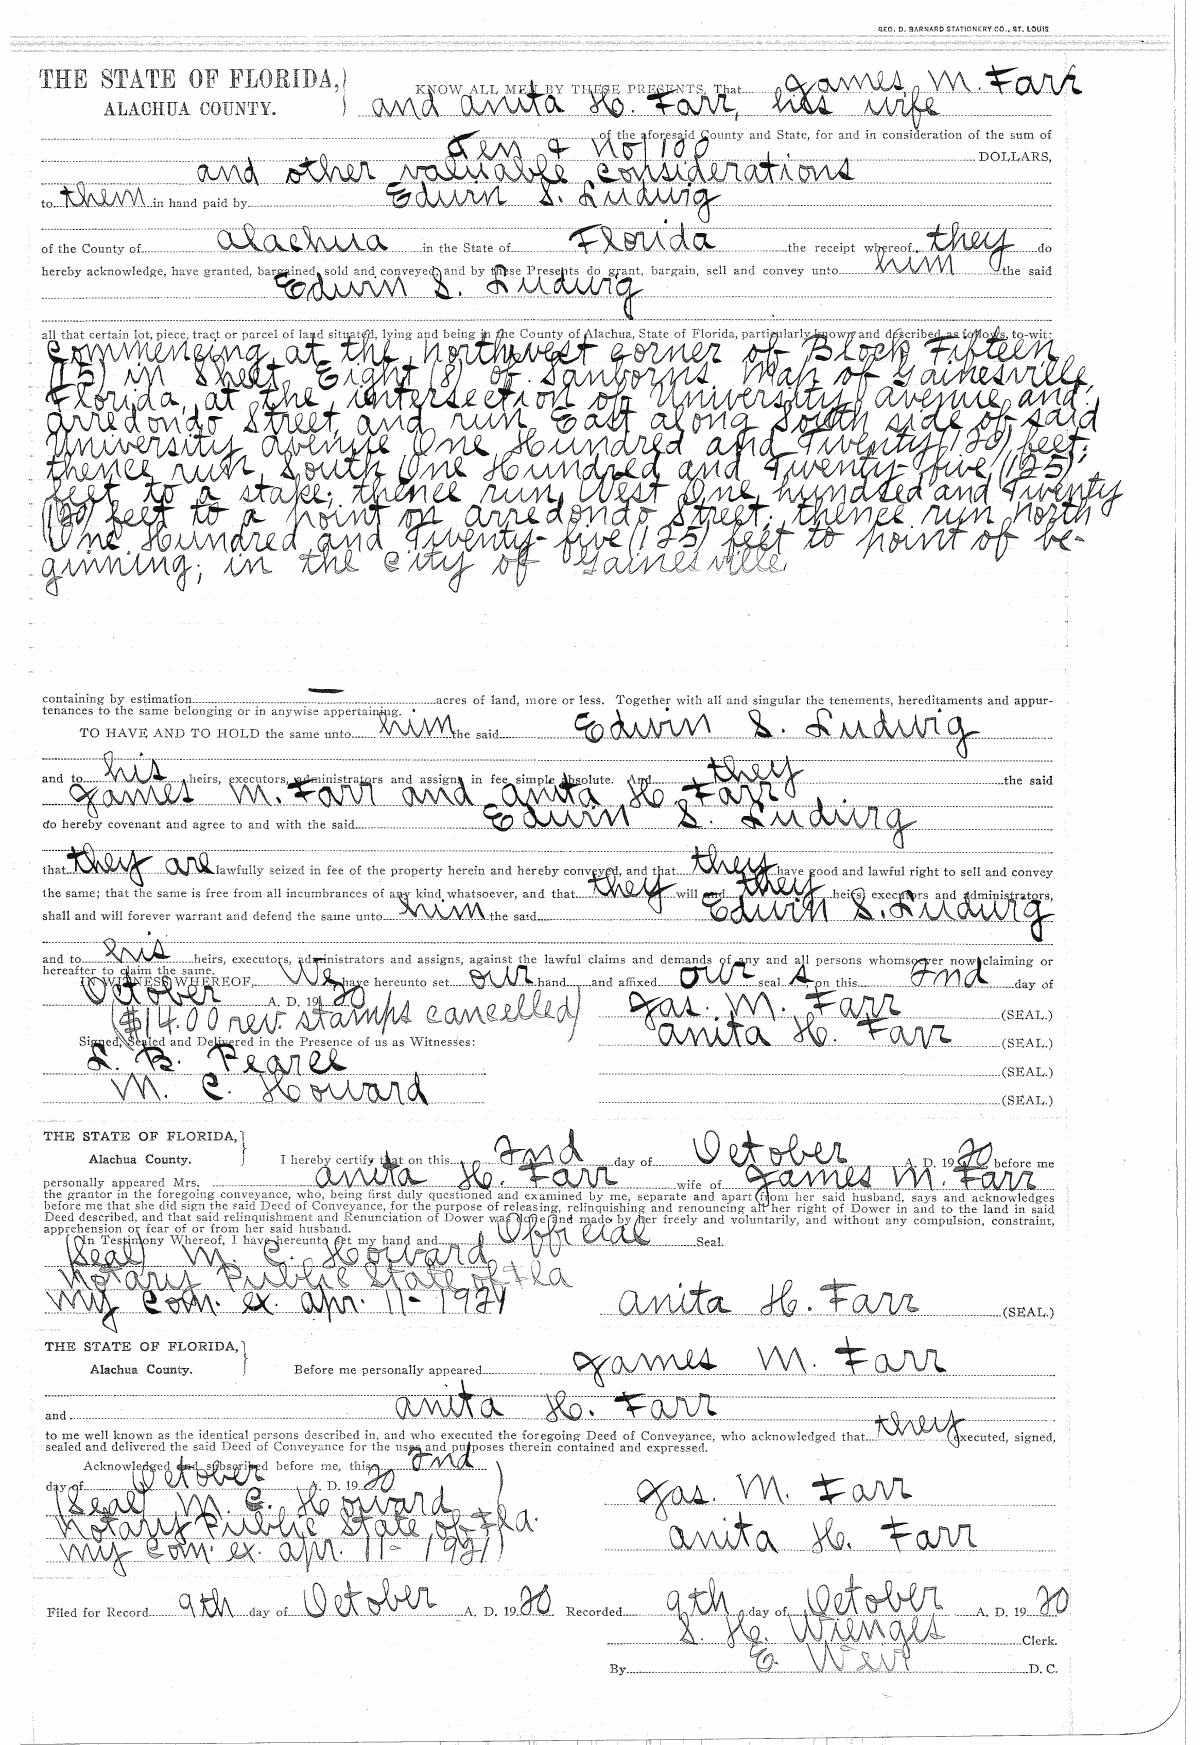 GEO. D. BARNARD STATIONERY CO., ST. LOUIS
THE STATE OF FLORIDA,) KNOW ALL MEN BY THESE PRESENTS, That James M. Farr
ALACHUA COUNTY. ) and Anita H. Farr, his wife
of the aforesaid County and State, for and in consideration of the sum of
Ten & No/100 DOLLARS,
and other valuable considerations
to them in hand paid by Edwin S. Ludwig
of the County of Alachua in the State of Florida the receipt whereof they do
hereby acknowledge, have granted, bargained, sold and conveyed, and by these Presents do grant, bargain, sell and convey unto him the said
Edwin S. Ludwig
all that certain lot, piece, tract or parcel of land situated, lying and being in the County of Alachua, State of Florida, particularly known and described as follows, to-wit:
Commencing at the northwest corner of Block Fifteen
(15) in Sheet Eight (8) of Sanborns Map of Gainesville,
Florida, at the intersection of University avenue and
Arredondo Street, and run East along South side of said
University avenue One Hundred and Twenty (120) feet;
thence run South One Hundred and Twenty-five (125)
feet to a stake; thence run West One hundred and Twenty
(120) feet to a point on Arredondo Street; thence run north
One Hundred and Twenty-five (125) feet to point of be-
ginning; in the City of Gainesville
containing by estimation — acres of land, more or less. Together with all and singular the tenements, hereditaments and appur-
tenances to the same belonging or in anywise appertaining.
TO HAVE AND TO HOLD the same unto him the said Edwin S. Ludwig
and to his heirs, executors, administrators and assigns in fee simple absolute. And they the said
James M. Farr and Anita H. Farr
do hereby covenant and agree to and with the said Edwin S. Ludwig
that they are lawfully seized in fee of the property herein and hereby conveyed, and that they have good and lawful right to sell and convey
the same; that the same is free from all incumbrances of any kind whatsoever, and that they will and they heirs, executors and administrators,
shall and will forever warrant and defend the same unto him the said Edwin S. Ludwig
and to his heirs, executors, administrators and assigns, against the lawful claims and demands of any and all persons whomsoever now claiming or
hereafter to claim the same.
IN WITNESS WHEREOF, We have hereunto set our hand and affixed our seal s on this 2nd day of
October A. D. 1920
($14.00 rev. stamps cancelled) Jas. M. Farr (SEAL.)
Signed, Sealed and Delivered in the Presence of us as Witnesses: Anita H. Farr (SEAL.)
L. B. Pearce (SEAL.)
M. C. Howard (SEAL.)
THE STATE OF FLORIDA,}
Alachua County. } I hereby certify that on this 2nd day of October A. D. 1920 before me
personally appeared Mrs. Anita H. Farr wife of James M. Farr
the grantor in the foregoing conveyance, who, being first duly questioned and examined by me, separate and apart from her said husband, says and acknowledges
before me that she did sign the said Deed of Conveyance, for the purpose of releasing, relinquishing and renouncing all her right of Dower in and to the land in said
Deed described, and that said relinquishment and Renunciation of Dower was done and made by her freely and voluntarily, and without any compulsion, constraint,
apprehension or fear of or from her said husband.
In Testimony Whereof, I have hereunto set my hand and Official Seal.
(Seal) M. C. Howard
Notary Public State of Fla
My Com. ex. Apr. 11- 1921 Anita H. Farr (SEAL.)
THE STATE OF FLORIDA,}
Alachua County. } Before me personally appeared James M. Farr
and Anita H. Farr
to me well known as the identical persons described in, and who executed the foregoing Deed of Conveyance, who acknowledged that they executed, signed,
sealed and delivered the said Deed of Conveyance for the uses and purposes therein contained and expressed.
Acknowledged and subscribed before me, this 2nd
day of October A. D. 1920
(Seal) M. C. Howard Jas. M. Farr
Notary Public State of Fla.
My Com. ex. Apr. 11- 1921 Anita H. Farr
Filed for Record 9th day of October A. D. 1920 Recorded 9th day of October A. D. 1920
S. H. Wienges Clerk.
By E. Weir D. C.